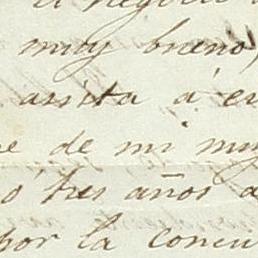 el negocio
muy bueno,
asista á es
e de mi muy
o tres años a
por la concu